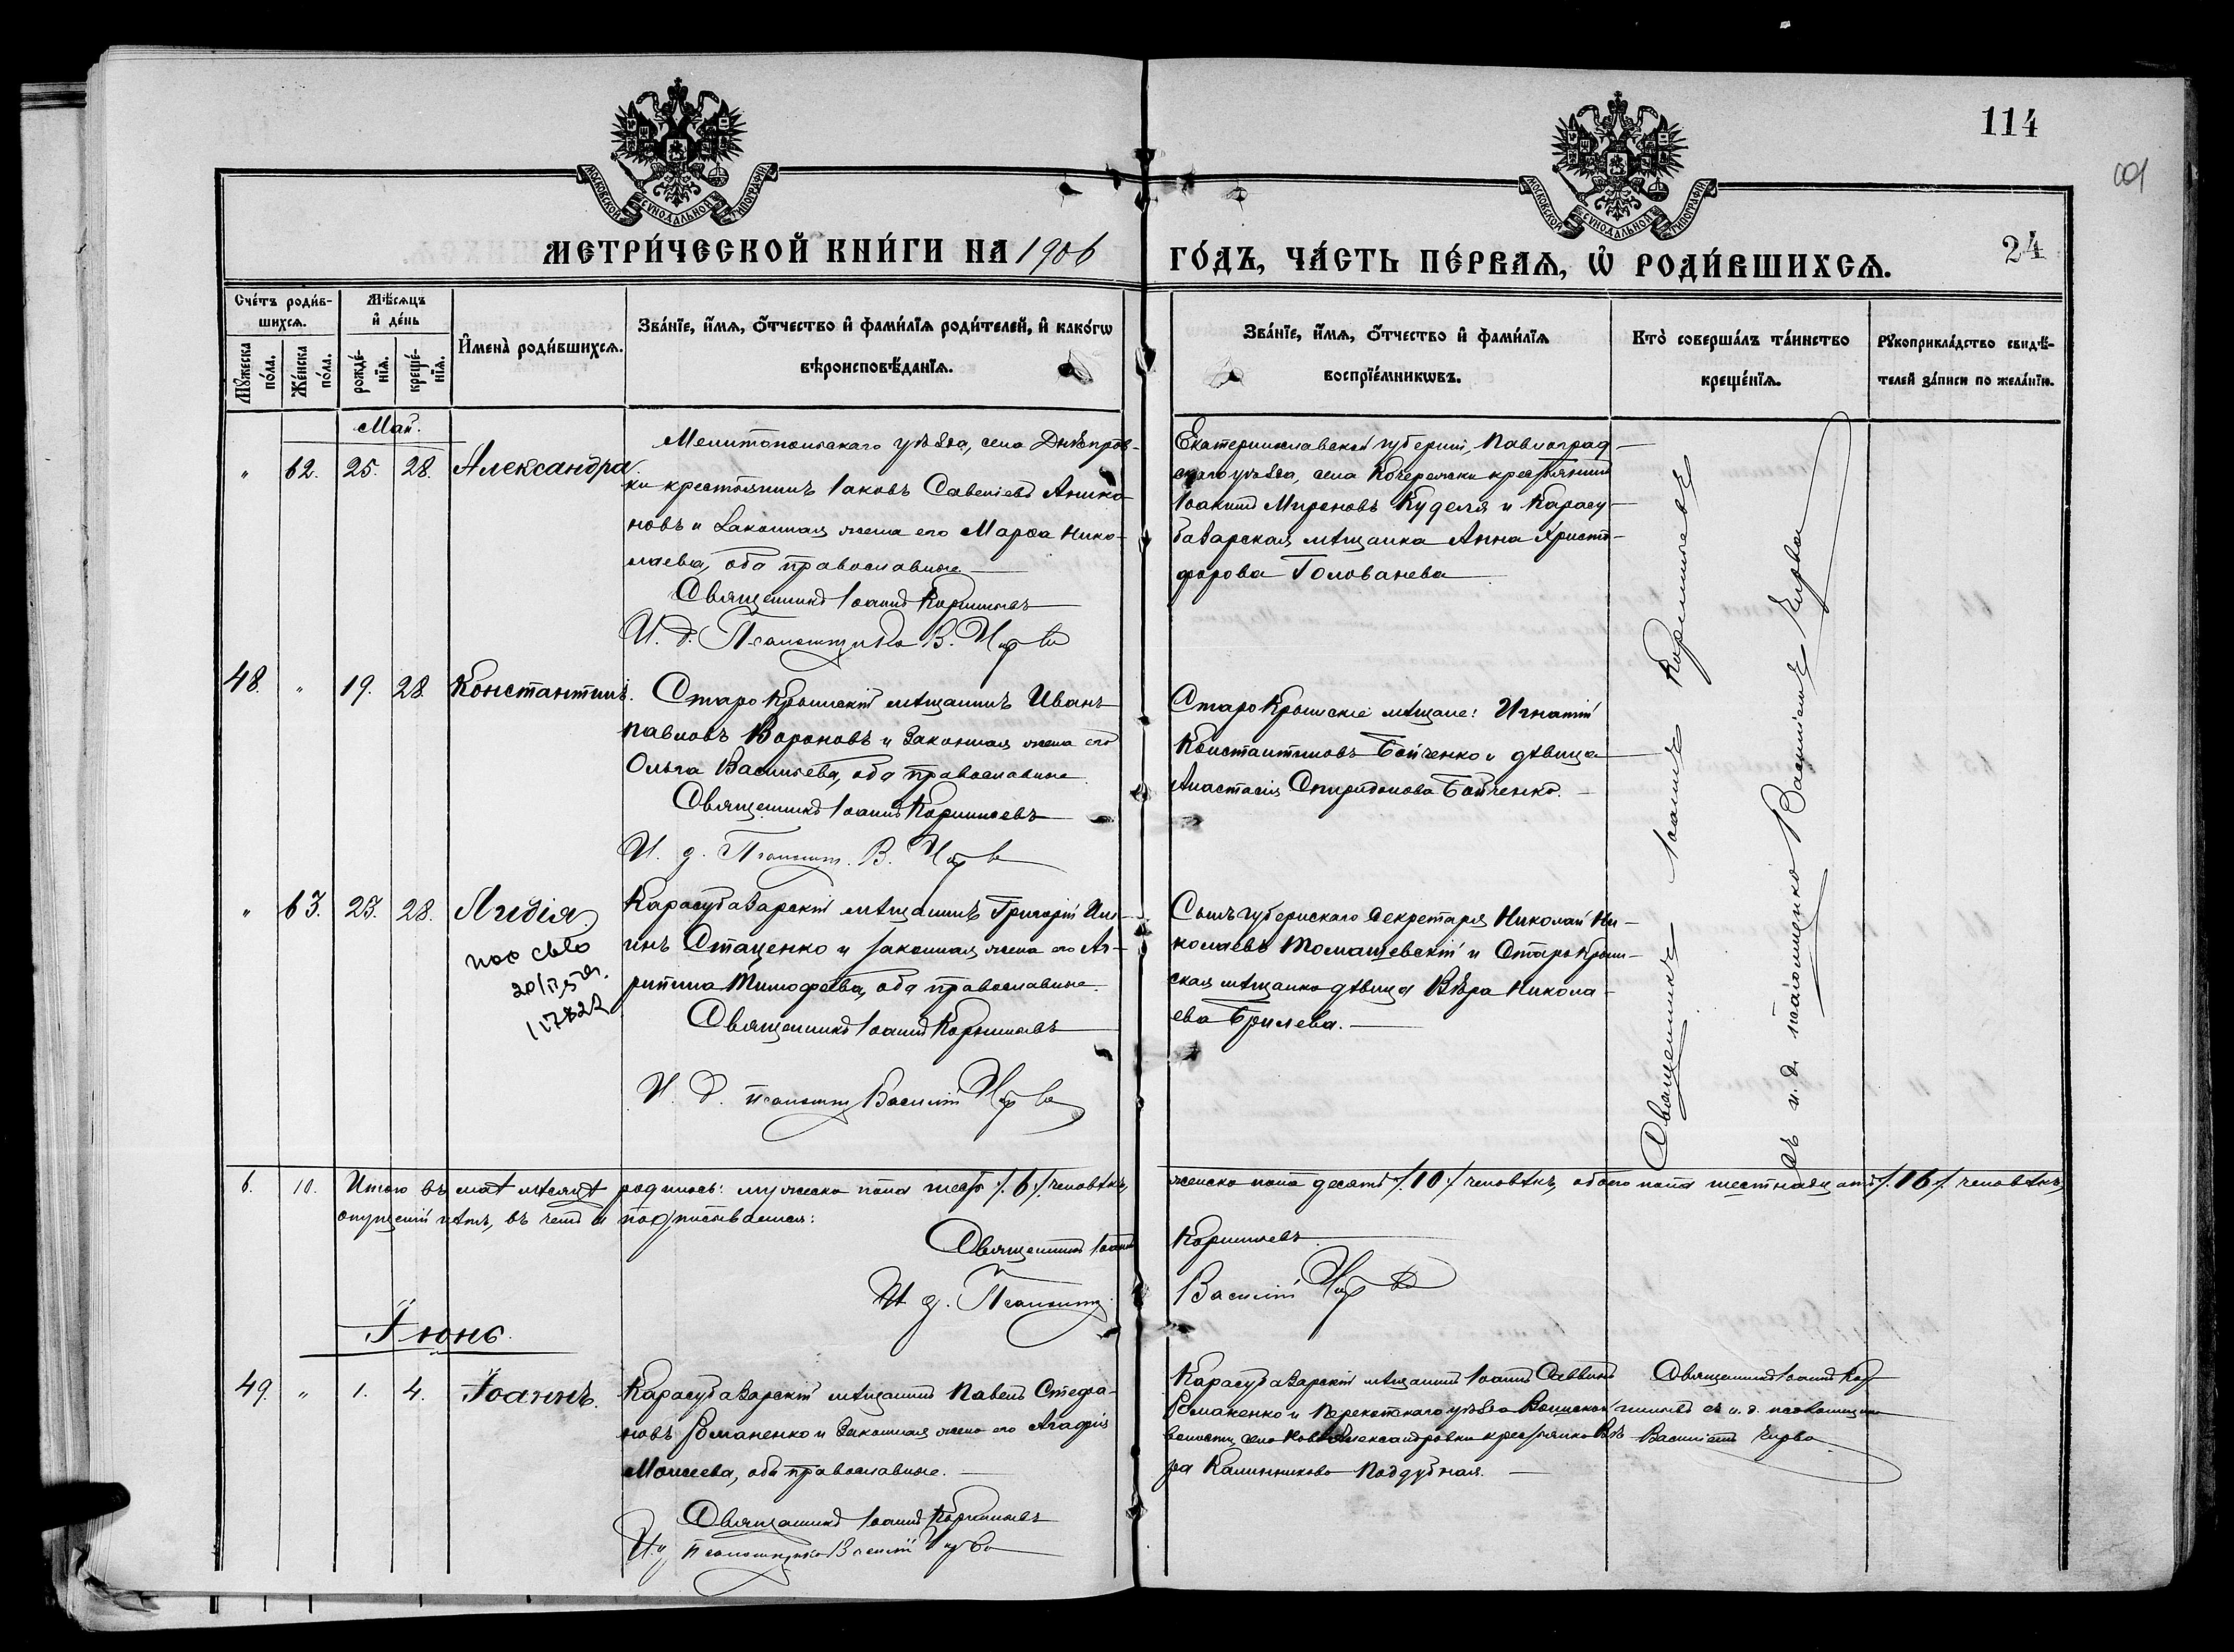 114
24
МОСКОВСКОЙ СѴНОДАЛЬНОЙ ТИПОГРАФІИ
МОСКОВСКОЙ СѴНОДАЛЬНОЙ ТИПОГРАФІИ
МЕТРИ́ЧЕСКОЙ КНИ́ГИ НА 1906
ГО́ДЪ, ЧА́СТЬ ПЕ́РВАѦ, Ѡ҆ РОДИ́ВШИХСѦ.
Сче́тъ роди́в-
шихсѧ.
Мꙋ́жеска по́ла.
Же́нска по́ла.
Мѣ́сѧцъ
и҆ де́нь
рожде́-
нїѧ.
креще́-
нїѧ.
И҆мена̀ роди́вшихсѧ.
Зва́нїе, и҆́мѧ, ѻ҆́тчество и҆ фами́лїѧ роди́телей, и҆ како́гѡ
вѣроисповѣ́данїѧ.
Зва́нїе, и҆́мѧ, ѻ҆́тчество и҆ фами́лїѧ
воспрїе́мникѡвъ.
Кто̀ соверша́лъ та́инство
креще́нїѧ.
Рꙋкоприкла́дство свидѣ́-
телей за́писи по жела́нїю.
Май.
" 62. 25. 28. Александра.
Мелитопольскаго уѣзда, села Днѣпров-
ки крестьянинъ Іаковъ Савеліевъ
новъ и законная жена его Марѳа Нико-
лаева, оба православные
Священникъ Іоаннъ
И. д. Псаломщика В.
Екатеринославской губерніи, Павлоград-
скаго уѣзда, села Кочережки крестьянинъ
Іоакимъ Мироновъ Куделя и Карасу-
базарская мѣщанка Анна Христо-
форова Голованева
48. " 19. 28. Константинъ.
Старокрымскій мѣщанинъ Иванъ
Павловъ Вороновъ и законная жена его
Ольга Васильева, оба православные
Священникъ Іоаннъ
И. д. Псаломщ. В.
Старокрымскіе мѣщане: Игнатій
Константиновъ Бойченко и дѣвица
Анастасія Спиридонова Бойченко.
" 63. 23. 28. Лидія.
Карасубазарскій мѣщанинъ Григорій Иль-
инъ Стаценко и законная жена его Аг-
рипина Тимофеева, оба православные.
Священникъ Іоаннъ
И. д. псаломщ. Василій
Сынъ губернскаго секретаря Николай Ни-
колаевъ Томашевскій и Старокрым-
ская мѣщанка дѣвица Вѣра Никола-
ева Брилева.
Священникъ Іоаннъ
съ и. д. псаломщика Василіемъ
6. 10. Итого въ маѣ мѣсяцѣ родилось: мужеска пола шесть /. 6 /. человѣкъ,
женска пола десять /. 10 /. человѣкъ, обоего пола шестнадцать /. 16 /. человѣкъ,
опущеній нѣтъ, въ чемъ и подписываемся:
Священникъ Іоаннъ
И. д. Псаломщ. Василій
Іюнь.
49. " 1. 4. Іоаннъ.
Карасубазарскій мѣщанинъ Павелъ Стефа-
новъ Романенко и законная жена его Агафія
Моисеева, оба православные.
Священникъ Іоаннъ
псаломщика Василій
Карасубазарскій мѣщанинъ Іоаннъ Саввинъ
Романенко и Перекопскаго уѣзда
волости, села Ново Александровки крестьянка Вѣ-
ра Калинникова Поддубная.
Священникъ Іоаннъ
съ и. д. псаломщика
Василіемъ